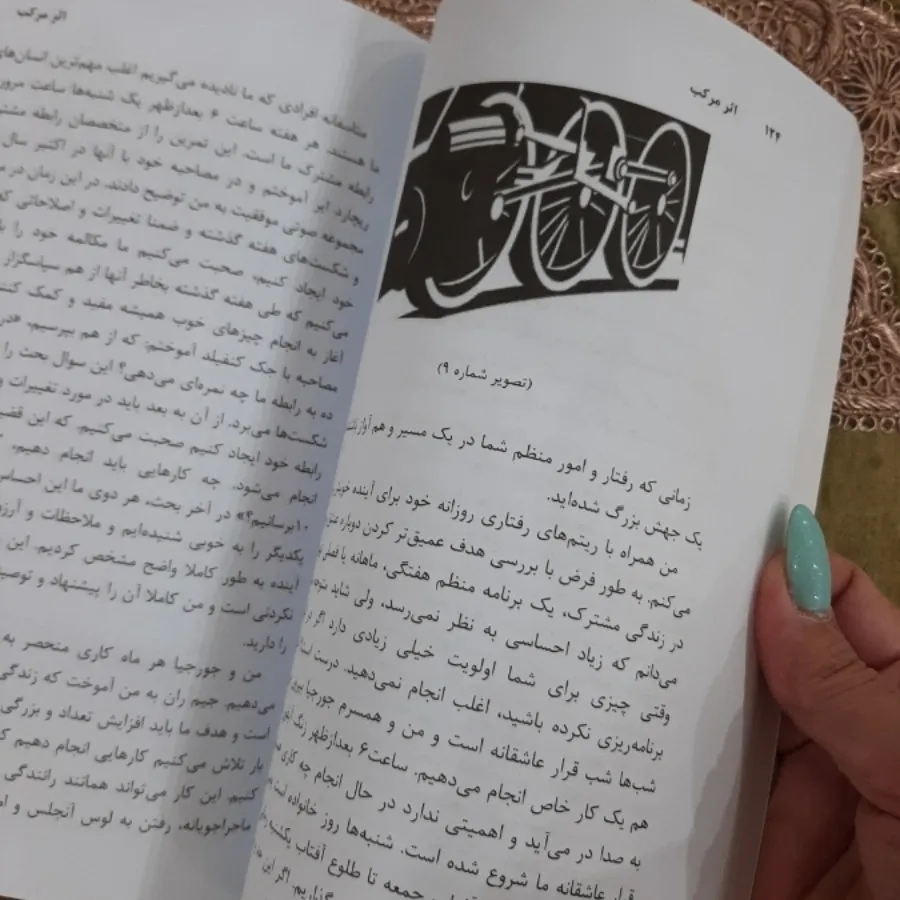 ۱۲۴ اثر مرکب
(تصویر شماره ۹)
زمانی که رفتار و امور منظم شما در یک مسیر و هم آواز
یک جهش بزرگ شده‌اید.
من همراه با ریتم‌های رفتاری روزانه خود برای آینده
می‌کنم. به طور فرض با بررسی هدف عمیق‌تر کردن دوباره
در زندگی مشترک، یک برنامه منظم هفتگی، ماهانه یا
می‌دانم که زیاد احساسی به نظر نمی‌رسد، ولی شاید
وقتی چیزی برای شما اولویت خیلی زیادی دارد اگر
برنامه‌ریزی نکرده باشید، اغلب انجام نمی‌دهید. درست
شب‌ها شب قرار عاشقانه است و من و همسرم جورجیا
هم یک کار خاص انجام می‌دهیم. ساعت ۶ بعدازظهر زنگ
به صدا در می‌آید و اهمیتی ندارد در حال انجام چه کاری
قرار عاشقانه ما شروع شده است. شنبه‌ها روز خانواده است
جمعه تا طلوع آفتاب یکشنبه
گذاریم. اگر این
اثر مرکب
متاسفانه افرادی که ما نادیده می‌گیریم اغلب مهم‌ترین انسان‌های
ما هستند. هر هفته ساعت ۶ بعدازظهر یک شنبه‌ها ساعت مرور
رابطه مشترک ما است. این تمرین را از متخصصان رابطه
ریچارد آموختم و در مصاحبه خود با آنها در اکتبر سال
مجموعه صوتی موفقیت به من توضیح دادند. در این زمان در
و شکست‌های هفته گذشته و ضمنا تغییرات و اصلاحاتی که
خود ایجاد کنیم، صحبت می‌کنیم ما مکالمه خود را با
می‌کنیم که طی هفته گذشته بخاطر آنها از هم سپاسگزار
آغاز به انجام چیزهای خوب همیشه مفید و کمک
مصاحبه با جک کنفیلد آموختم: که از هم بپرسیم،
ده به رابطه ما چه نمره‌ای می‌دهی؟ این سوال بحث را
شکست‌ها می‌برد. از آن به بعد باید در مورد تغییرات و
رابطه خود ایجاد کنیم صحبت می‌کنیم. که این
انجام می‌شود. چه کارهایی باید انجام دهیم،
۱۰برسانیم؟» در آخر بحث، هر دوی ما این احساس
یکدیگر را به خوبی شنیده‌ایم و ملاحظات و
آینده به طور کاملا واضح مشخص کردیم. این
نکردنی است و من کاملا آن را پیشنهاد و
را دارید.
من و جورجیا هر ماه کاری منحصر به
می‌دهیم. جیم ران به من آموخت که زندگی
است و هدف ما باید افزایش تعداد و بزرگی
بار تلاش می‌کنیم کارهایی انجام دهیم
کنیم. این کار می‌تواند همانند رانندگی
ماجراجویانه، رفتن به لوس آنجلس و